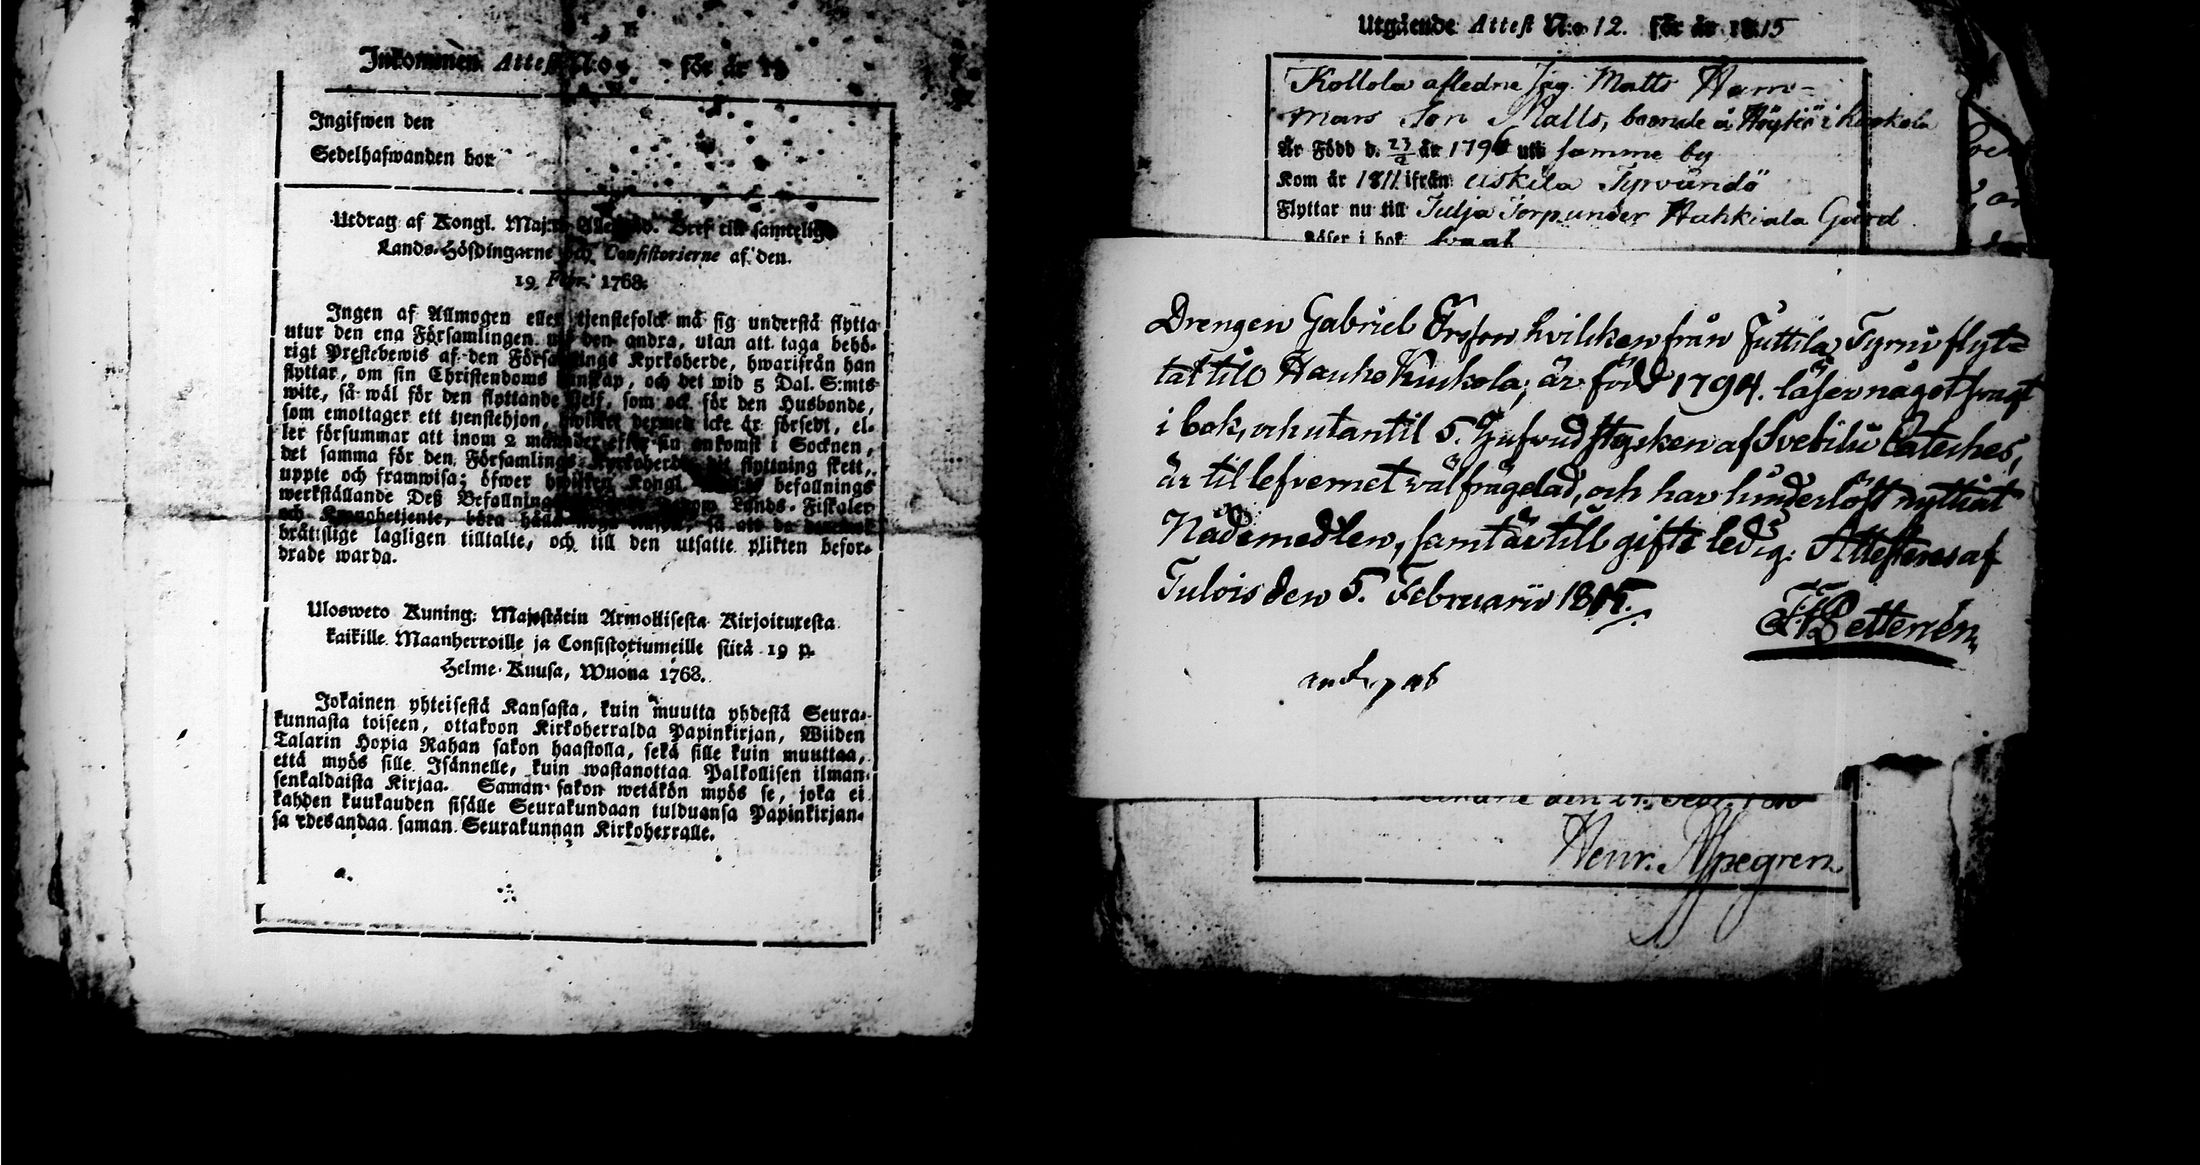 Inkommen Attest N:o för år 18
Ingifwen den
Sedelhafwanden bor
Utdrag af Kongl. Maj:ts Bref till samtelige
Lands-Höfdingarne och Consistorierne af den
19 Febr. 1768.
Ingen af Allmogen eller tjenstefolck må sig understå flytta
utur den ena Församlingen den andra, utan att taga behö-
rigt Prestebewis af den Församlings Kyrkoherde, hwarifrån han
flyttar, om sin Christendoms kunskap, och det wid 5 Dal. S:mts
wite, så wäl för den flyttande self, som ock för den Husbonde,
som emottager ett tjenstehjon, hwilket dermed icke är försedt, el-
ler försummar att inom 2 månader efter sin ankomst i Socknen,
det samma för den Församlings Kyrkoherde, dit flyttning skett,
uppte och framwisa; öfwer hwilken Kongl. befallnings
werkställande Deß Befallning Lands-Fiskaler
och Kronobetjente, böra hålla så att de
brättslige lagligen tilltalte, och till den utsatte plikten befor-
drade warda.
Ulosweto Kuning: Majestätin Armollisesta Kirjoituxesta
kaikille Maanherroille ja Consistoriumeille siitä 19 p.
Helme-Kuusa, Wuona 1768.
Jokainen yhteisestä Kansasta, kuin muutta yhdestä Seura-
kunnasta toiseen, ottakoon Kirkoherralda Papinkirjan, Wiiden
Talarin Hopia Rahan sakon haastolla, sekä sille kuin muuttaa,
että myös sille Isännelle, kuin wastanottaa Palkollisen ilman
senkaldaista Kirjaa. Saman sakon wetäkön myös se, joka ei
kahden kuukauden sisälle Seurakundaan tulduansa Papinkirjan-
sa edesandaa saman Seurakunnan Kirkoherralle.
a.
Utgående Attest N:o 12. för år 1815
Kollola afledne Matts Ham-
mars Son Matts, boende å i
Är Född d. 23/2 år 179 uti samme by
Kom år 1811 ifrån Uskila Tyrvändö
Flyttar nu till Julja Torp under Hahkiala Gård
Läser i bok svagt
Drengen Gabriel Ersson hvilken från Juttila Tyrvi flyt-
tat til Hauho Kuckola, är född 1794. läser något svagt
i bok, och utantil 5. Hufvudstycken af Svebilii Cateches,
är til lefvernet välfrägdad, och har hinderlöst nyttiat
Nådemedlen, samt är till gifte ledig. Attesteras af
Tulois den 5. Februarii 1815.
Petterrén
Henr. Alpegren